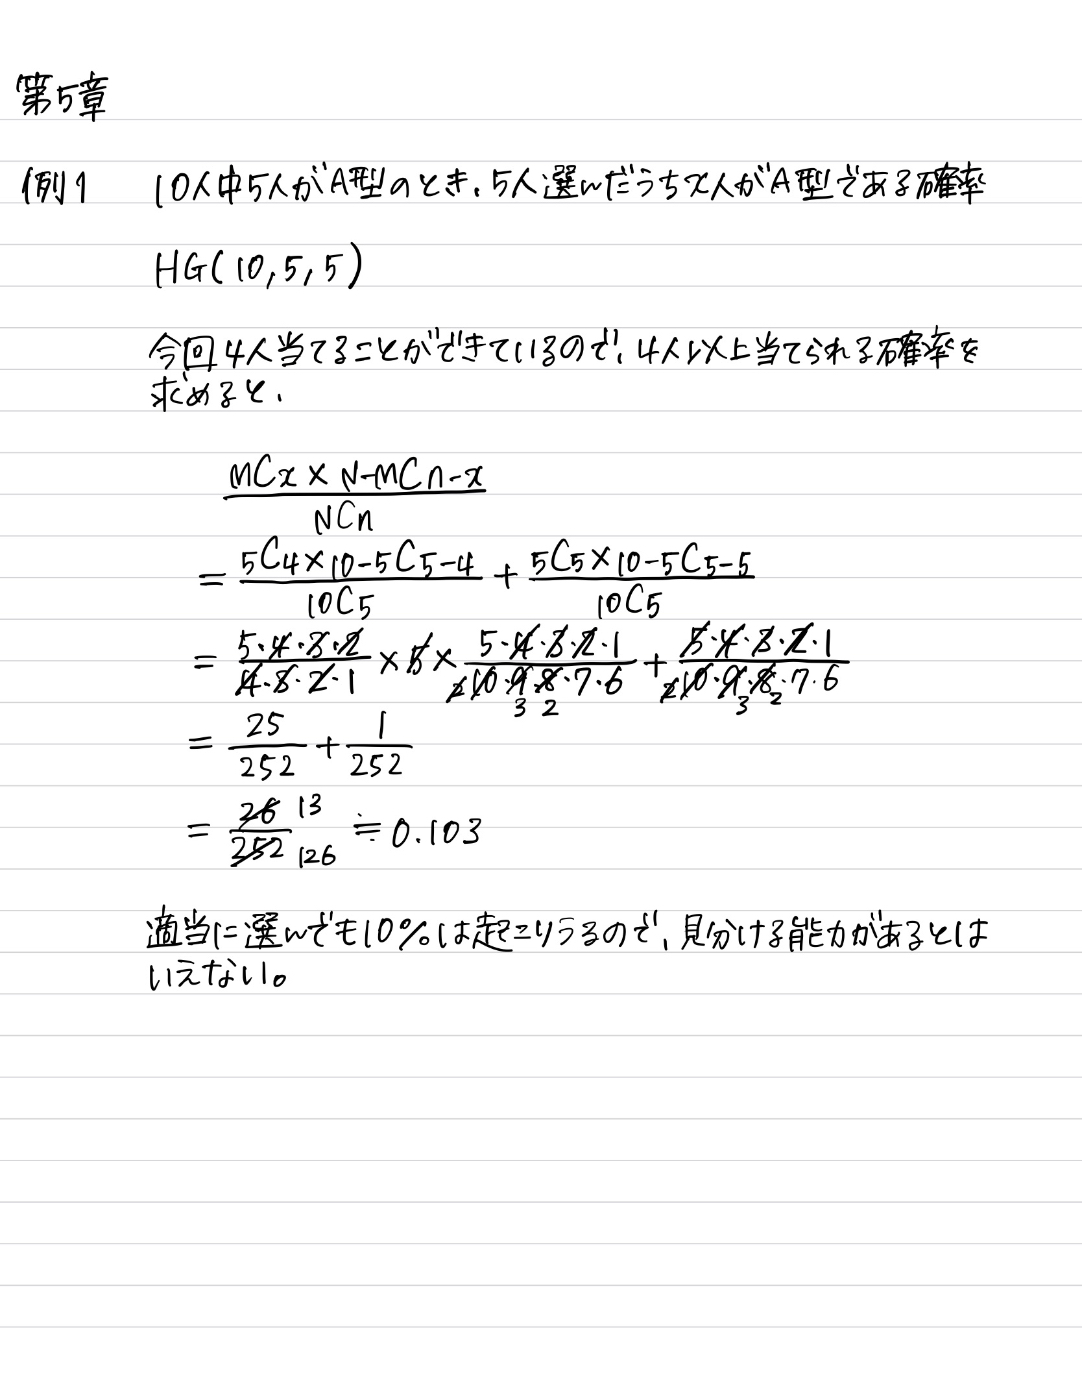 第5章
例1 10人中5人がA型のとき、5人選んだうちx人がA型である確率
HG(10,5,5)
今回4人当てることができているので、4人以上当てられる確率を
求めると、
MCx × N-MCn-x
NCn
= 5C4×10-5C5-4 + 5C5×10-5C5-5
10C5 10C5
= 5·4·3·2 × 5 × 5·4·3·2·1 + 5·4·3·2·1
4·3·2·1 2 10·9·8·7·6 2 10·9·8·7·6
3 2 3 2
= 25 + 1
252 252
= 26 13 ≒ 0.103
252 126
適当に選んでも10%は起こりうるので、見分ける能力があるとは
いえない。